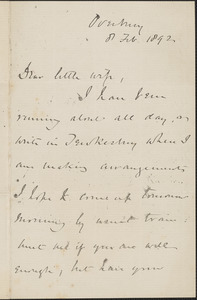 Overbury
8 Feb 1892
Dear little wife,
I have been
running about all day, as
in Tewkesbury when I
am making arrangements
I hope to come up tomorrow
morning by usual train:
meet me if you are well
enough, but have your